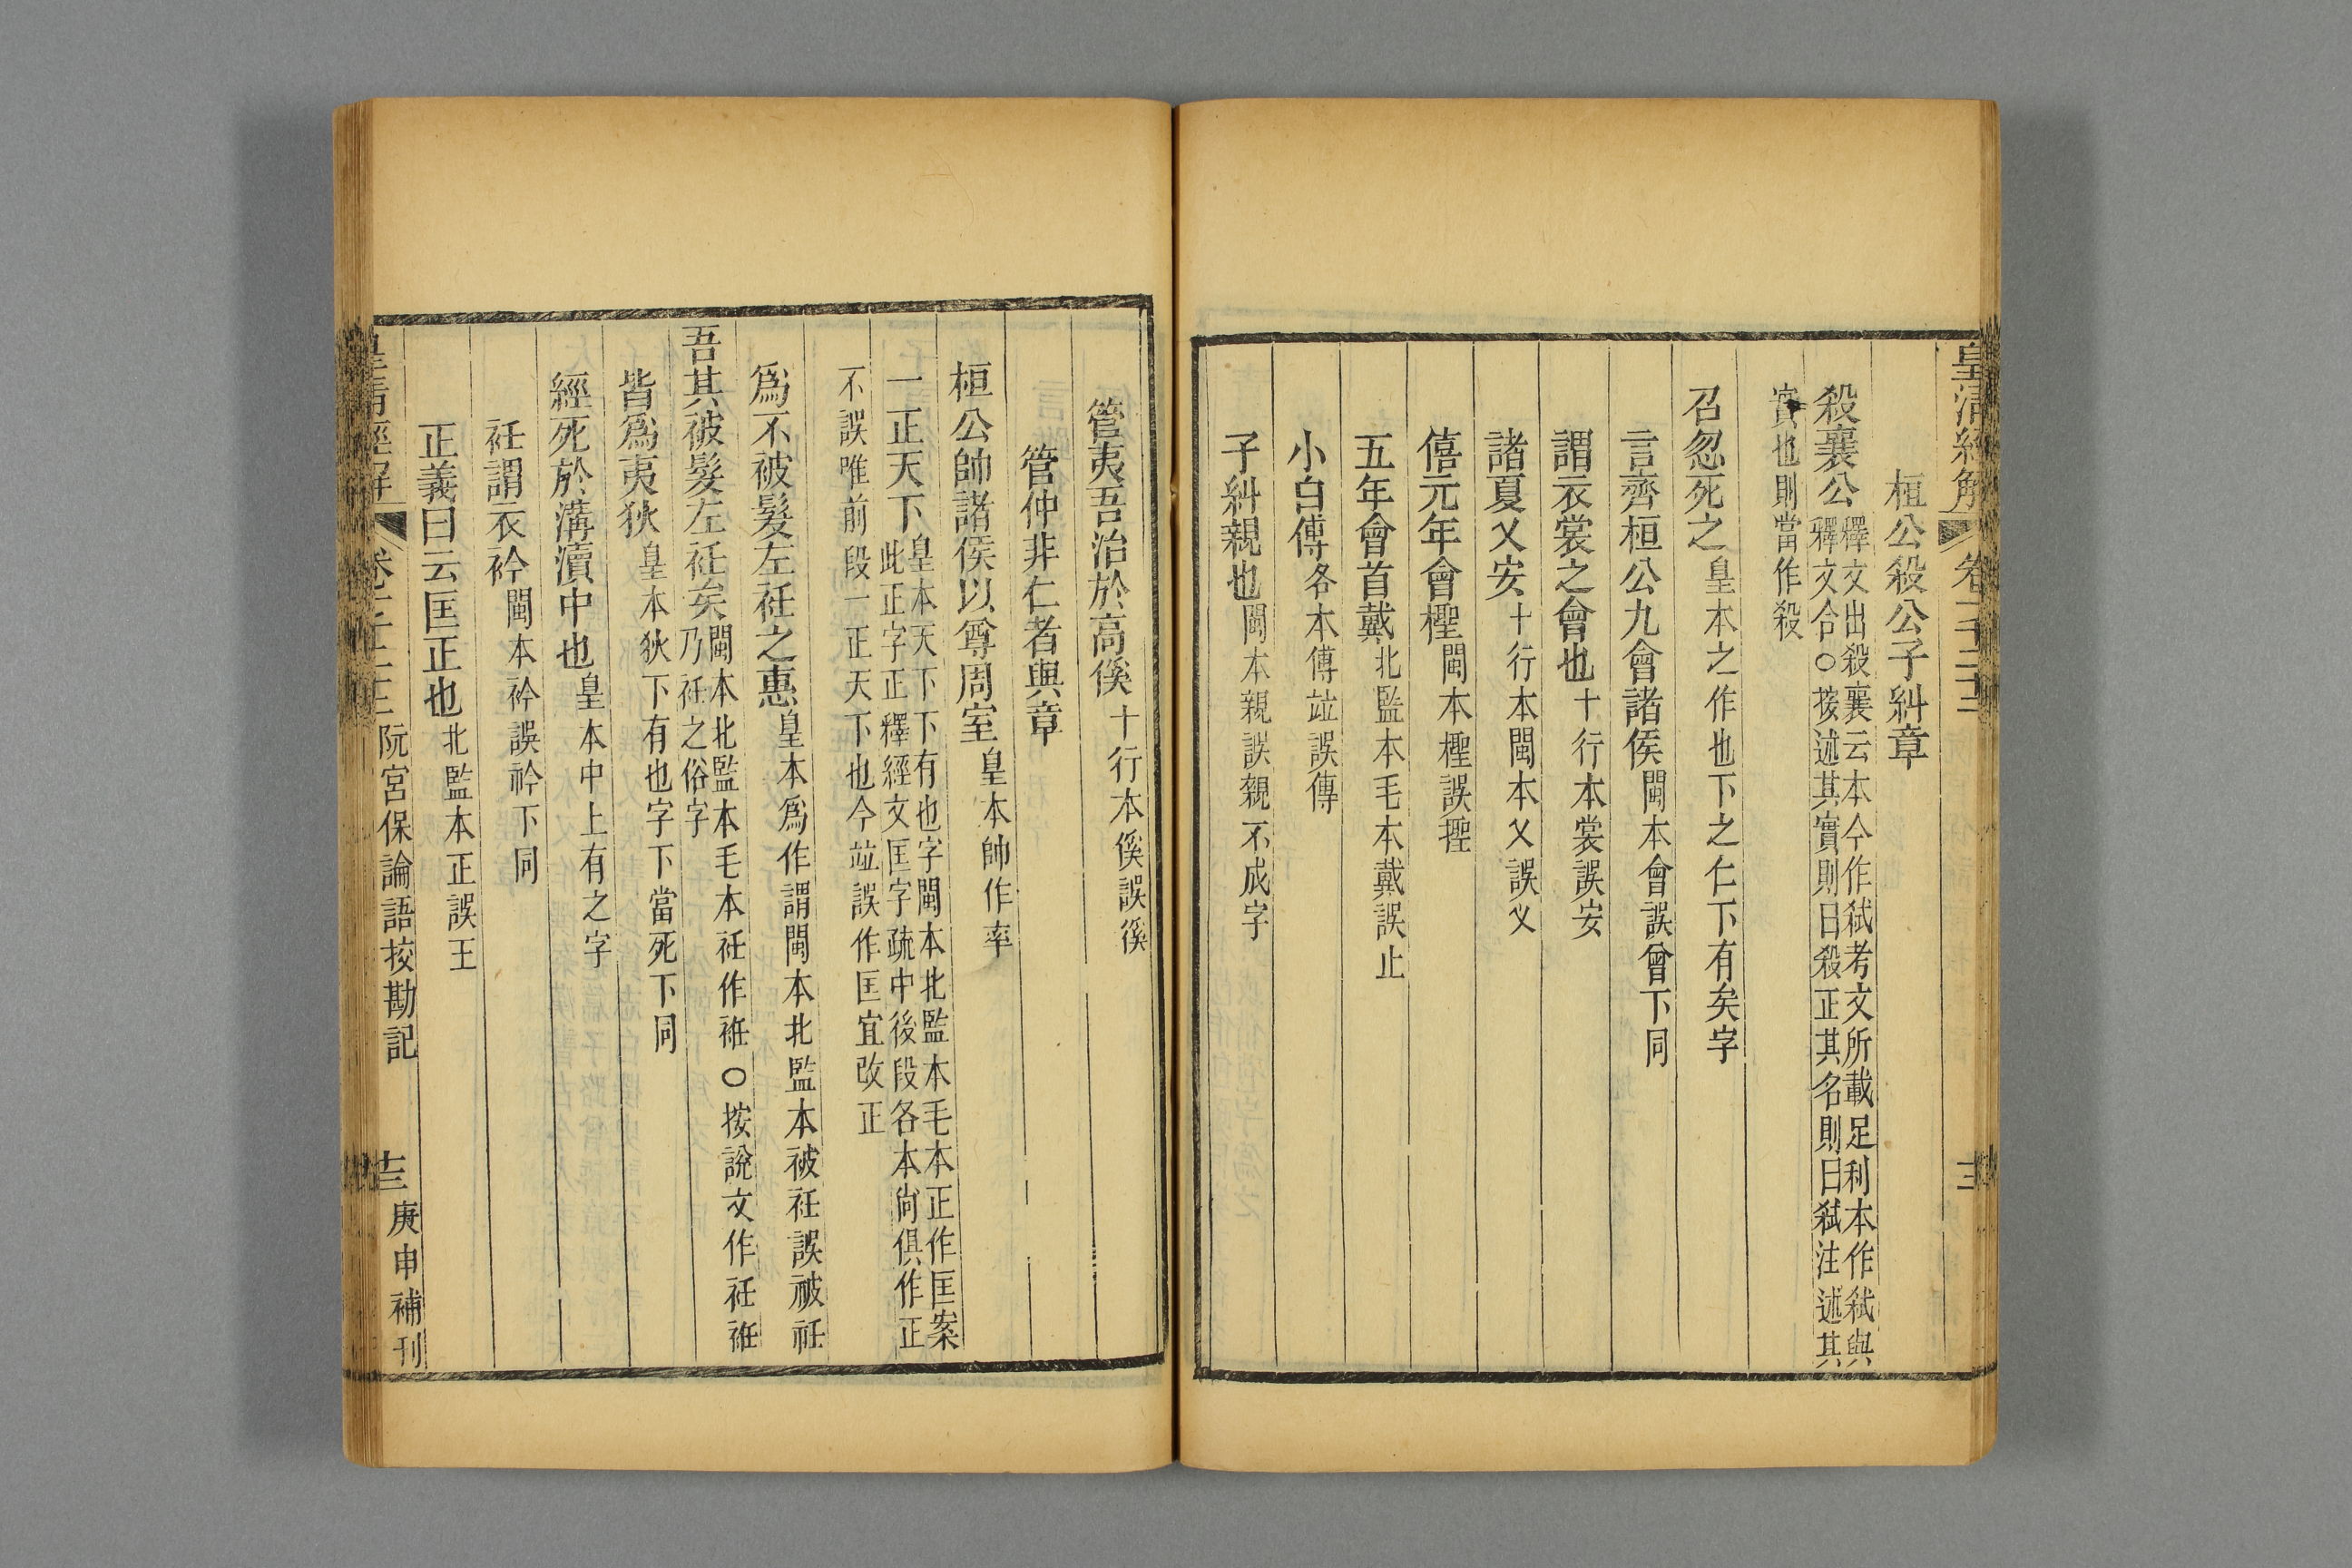 皇清經解
桓公殺公子糾章
殺襄公釋文出殺襄云本今作弑考文所載足利本作弑與
釋文合○按述其實則曰殺正其名則曰弑注述其
實也則當作殺
召忽死之皇本之作也下之仁下有矣字
言齊桓公九會諸侯閩本會誤曾下同
謂衣裳之會也十行本裳誤安
諸夏乂安十行本閩本乂誤义
僖元年會檉閩本檉誤
五年會首戴北監本毛本戴誤止
小白傅各本傅竝誤傳
子糾親也閩本親誤不成字
管夷吾治於高傒十行本傒誤徯
管仲非仁者與章
桓公帥諸侯以尊周室皇本帥作率
一正天下皇本天下下有也字閩本北監本毛本正作匡案
此正字正釋經文匡字疏中後段各本尙俱作正
不誤唯前段一正天下也今竝誤作匡宜改正
爲不被髮左衽之惠皇本爲作謂閩本北監本被衽誤
吾其被髮左衽矣閩本北監本毛本衽作袵○按說文作衽袵
乃衽之俗字
皆爲夷狄皇本狄下有也字下當死下同
經死於溝瀆中也皇本中上有之字
衽謂衣衿閩本衿誤衿下同
正義曰云匡正也北監本正誤王
皇清經解
阮宮保論語挍勘記
庚申補刊